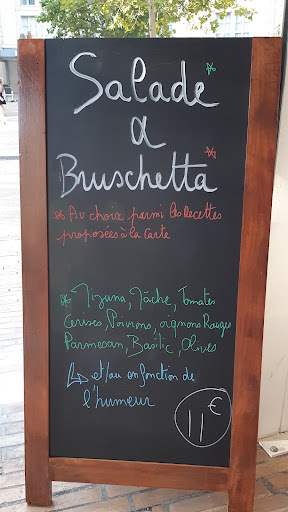 Salade *
&
Bruschetta *
* Au choix parmi les Recettes
proposées à la Carte
* Mizuna, Mâche, Tomates
Cerises, Poivrons, oignons Rouges
Parmesan, Basilic, Olives
↳ et/ou en fonction de
l'humeur
11€